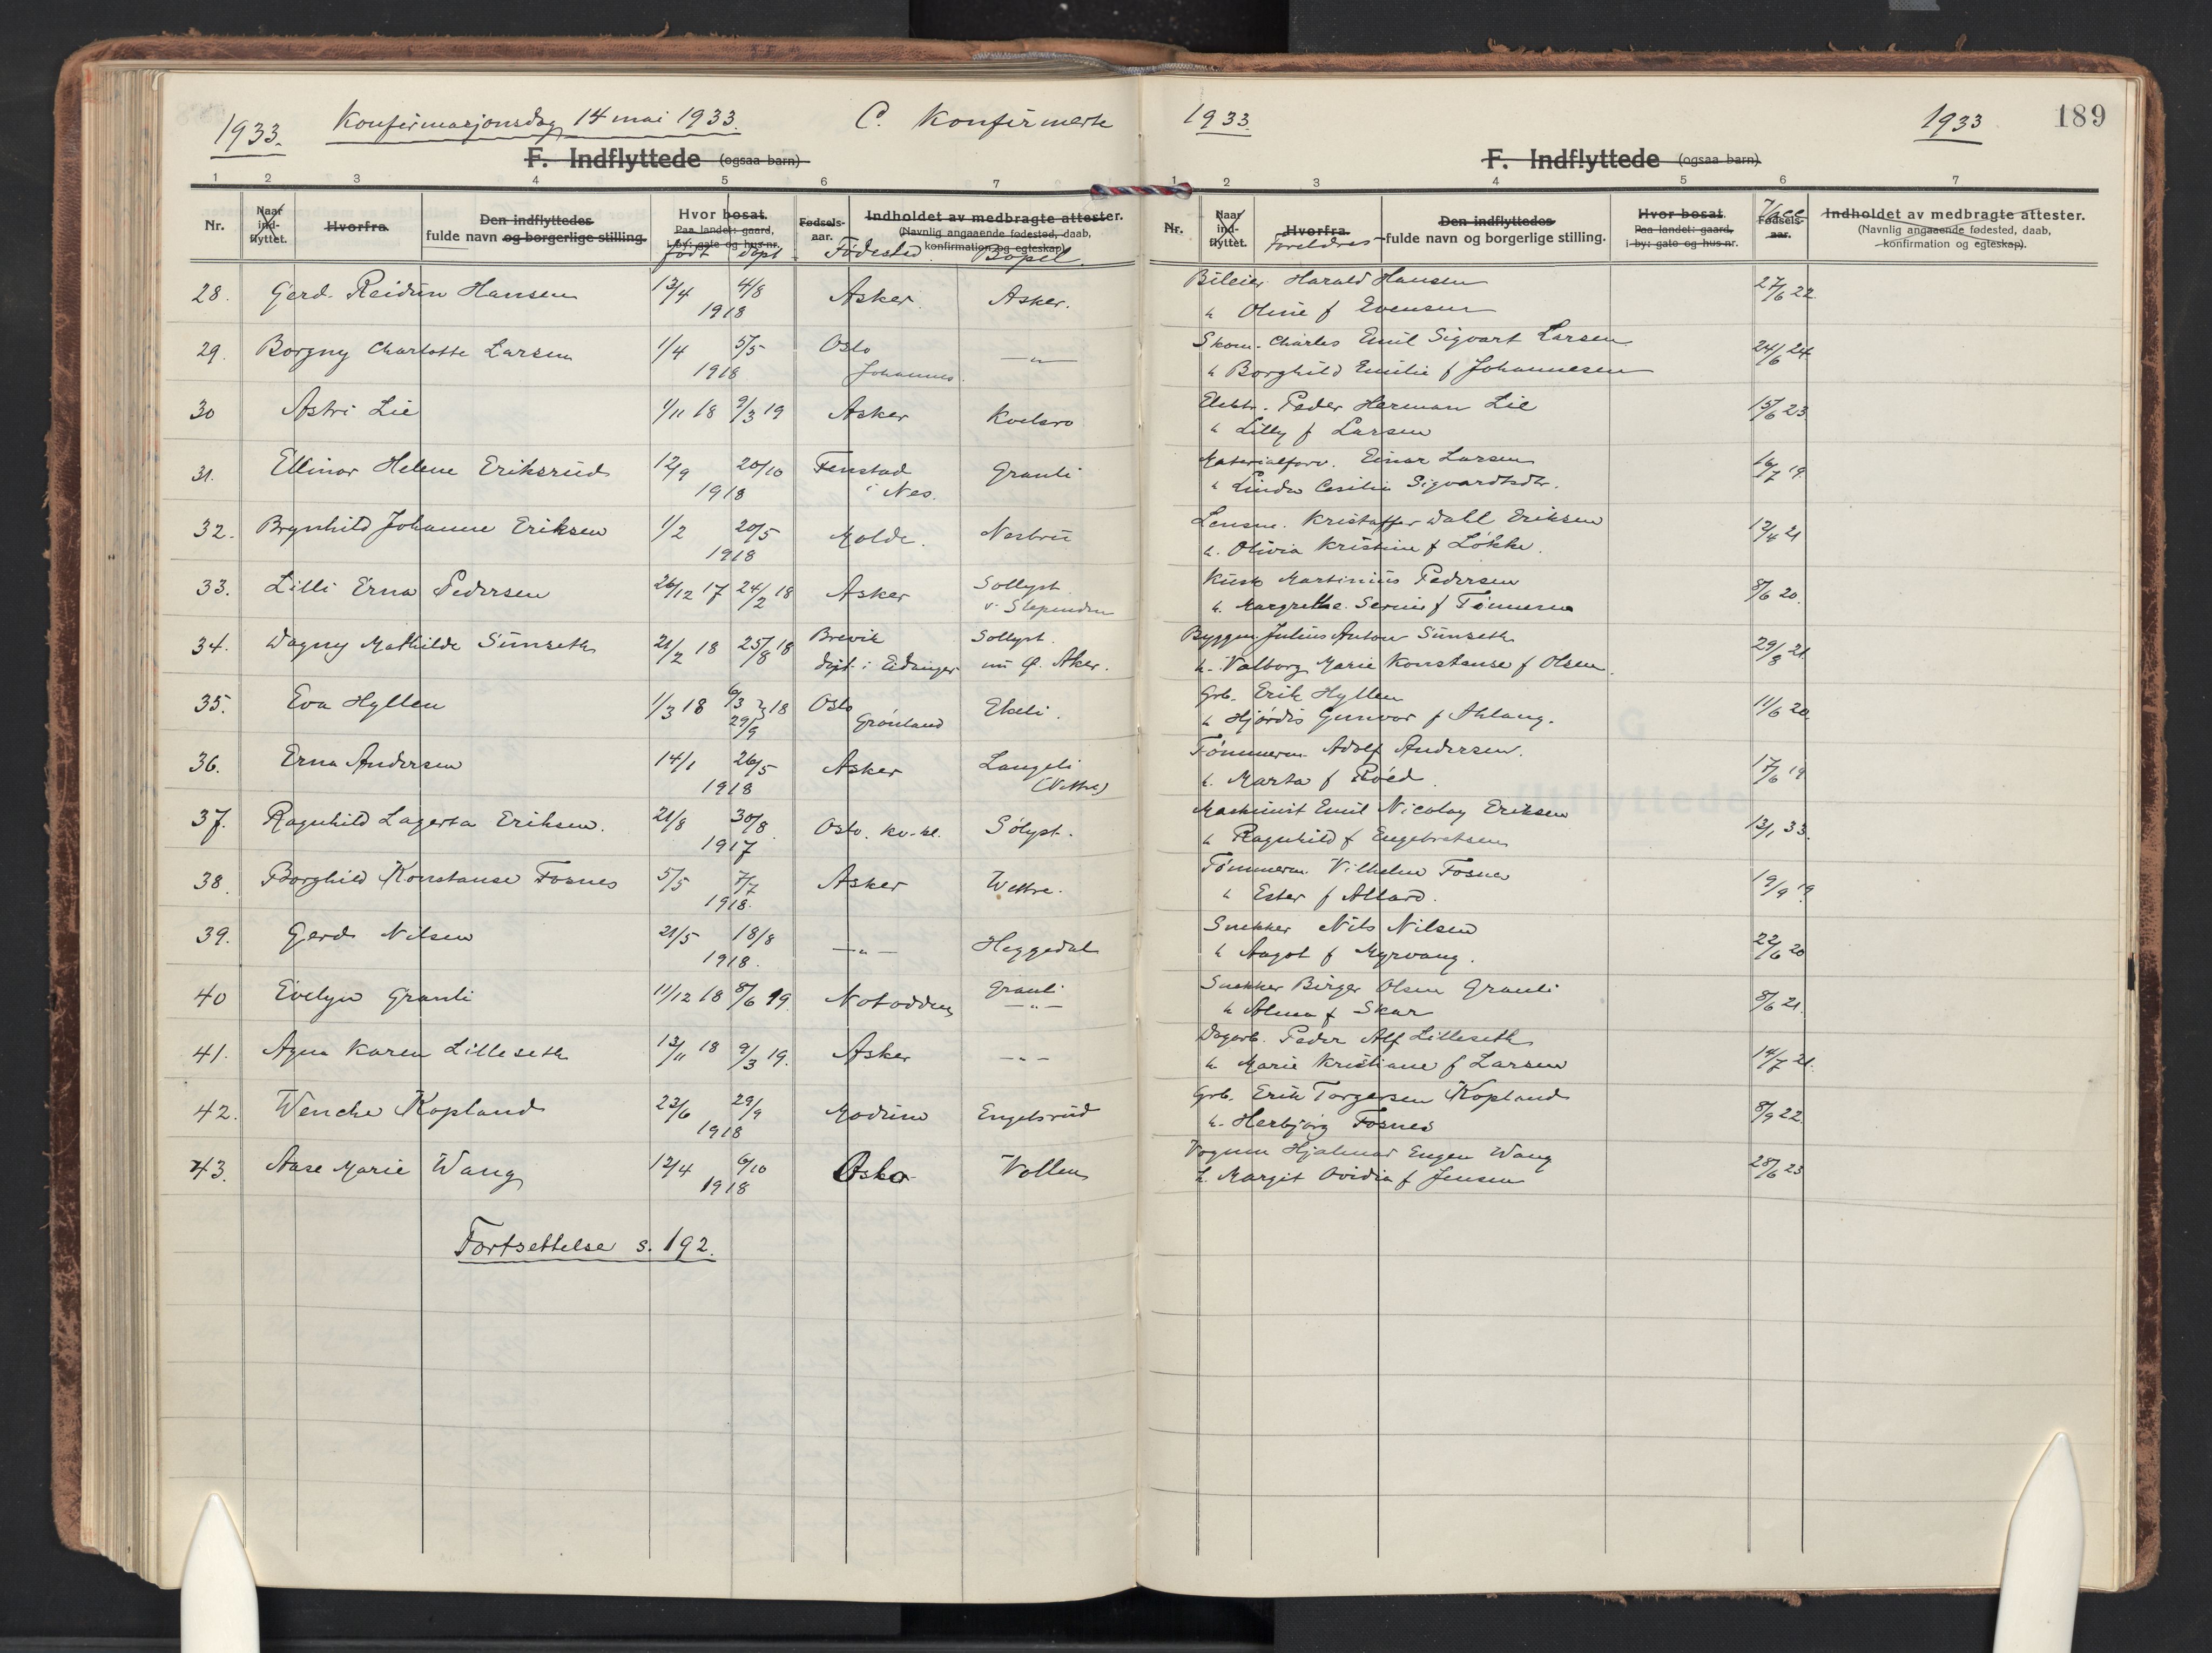 1933. Konfirmasjonsdag 14 mai 1933. C. Konfirmerte
F. Indflyttede (ogsaa barn)
1 2 3 4 5 6 7
Nr. Naar ind-flyttet. Hvorfra. Den indflyttedes fulde navn og borgerlige stilling. Hvor bosat. Paa landet: gaard, i by: gate og hus-nr. Fødsels-aar. Indholdet av medbragte attester. (Navnlig angaaende fødested, daab, konfirmation og egteskap).
født døpt Fødested. Bopel.
28. Gerd Reidun Hansen 13/4 4/8 1918 Asker. Asker.
29. Borgny Charlotte Larsen 1/4 5/5 1918 Oslo Johannes. —"—
30 Astri Lie 1/11 18 9/3 19 Asker
31. Ellinor Helene Eriksrud 12/9 20/10 1918 Fenstad i Nes. Granli
32. Brynhild Johanne Eriksen 1/2 20/5 1918 Molde. Nesbru
33. Lilli Erna Pedersen 26/12 17 24/2 18 Asker Sollyst v. Slependen
34. Dagny Mathilde Sunseth 21/2 18 25/8 18 Brevik døpt i Eidanger Sollyst. nu Ø. Aker.
35. Eva Hyllen 1/3 18 6/3 29/9 18 Oslo Grønland Ekeli.
36. Erna Andersen 14/1 26/5 1918 Asker Langeli (Vettre)
37. Ragnhild Lagerta Eriksen. 21/8 30/8 1917 Oslo. kv.-kl. Sólyst.
38. Borghild Konstanse Fosnes 5/5 7/7 1918. Asker Wettre.
39. Gerd Nilsen 21/5 18/8 1918. —"— Heggedal
40 Evelyn Granli 11/12 18 8/6 19. Notodden Granli —"—
41. Agna Karen Lilleseth 13/11 18 9/3 19. Asker —"—
42. Wenche Kopland 23/6 29/9 1918 Modum Engelsrud
43. Aase Marie Wang 12/4 6/10 1918 Vollen
Fortsettelse s. 192.
1933. 1933 189
F. Indflyttede (ogsaa barn)
1 2 3 4 5 6 7
Nr. Naar ind-flyttet. Hvorfra. Den indflyttedes fulde navn og borgerlige stilling. Hvor bosat. Paa landet: gaard, i by: gate og hus-nr. Fødsels-aar. Indholdet av medbragte attester. (Navnlig angaaende fødested, daab, konfirmation og egteskap).
Foreldres Vacc
Bileier Harald Hansen 27/6 22
h Oline f Evensen
Skom. Charles Emil Sigvart Larsen 24/6 24
h Borghild Emilie f Johannesen
Elektr. Peder Herman Lie 15/6 23
h Lilly f Larsen
Materialforv. Einar Larsen 16/7 19
h Linda Cesilie Sigvardtsdtr.
Lensm. Kristoffer Dahl Eriksen 12/4 21
h. Olivia Kristine f Løkke.
Kusk Martinius Pedersen 8/6 20.
h. Margrethe f Tønnesen
Byggm. Julius Anton Sunseth 29/8 21
h. Valborg Marie Konstanse f Olsen.
Grb. Erik Hyllen 11/6 20
h Hjørdis Gunvor f Ahlang.
Tømmerm. Adolf Andersen. 17/6 19
h. Marta f Röed.
Maskinist Emil Nicolay Eriksen 13/1 33.
h Ragnhild f Engebretsen
Tømmerm. Vilhelm Fosnes 19/9 19
h Ester f Allard.
Snekker Nils Nilsen 22/6 20
h Aagot f Myrvang.
Snekker Birger Olsen Granli 8/6 21.
h Alma f Skar
Dagarb. Peder Alf Lilleseth 14/7 21.
h Marie Kristiane f Larsen
Grb. Erik Torgersen Kopland 8/9 22
h. Herbjørg Fosnes
Vognm Hjalmar Eugen Wang 28/6 23
h. Margit Ovidia f Jensen